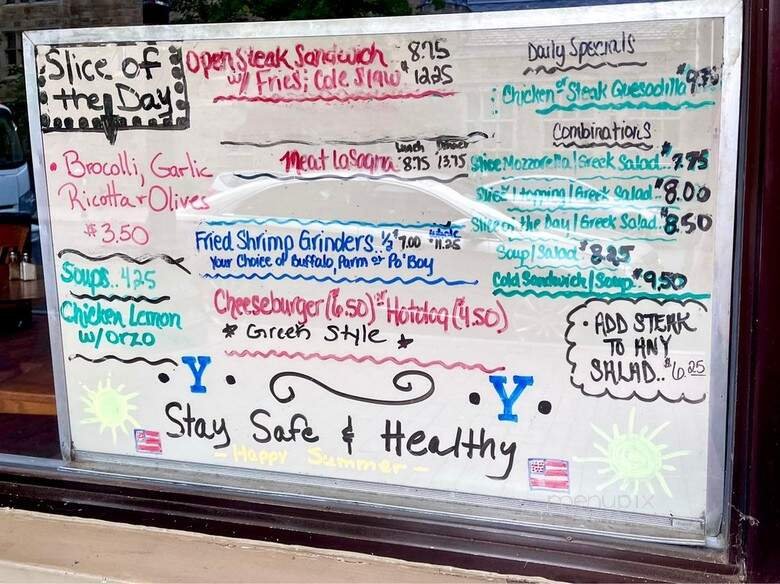 Slice of
the Day
• Brocolli, Garlic
Ricotta + Olives
$3.50
Soups.. 4.25
Chicken Lemon
w/ Orzo
Open Steak Sandwich 8.75
w/ Fries; Cole Slaw $12.25
Lunch Dinner
Meat Lasagna $8.75 13.75
Fried Shrimp Grinders.. ½ $7.00 whole $11.25
Your Choice of Buffalo, Parm or Po' Boy
Cheeseburger (6.50) or Hotdog (4.50)
* Greek Style *
Daily Specials
Chicken or Steak Quesadilla $9.75
Combinations
Slice Mozzarella / Greek Salad.. 7.75
Slice 1 topping / Greek Salad.. $8.00
Slice of the Day / Greek Salad.. 8.50
Soup / Salad $8.25
Cold Sandwich / Soup.. $9.50
• ADD STEAK
TO ANY
SALAD.. $6.25
• Y •
• Y •
Stay Safe & Healthy
- Happy Summer -
menupix